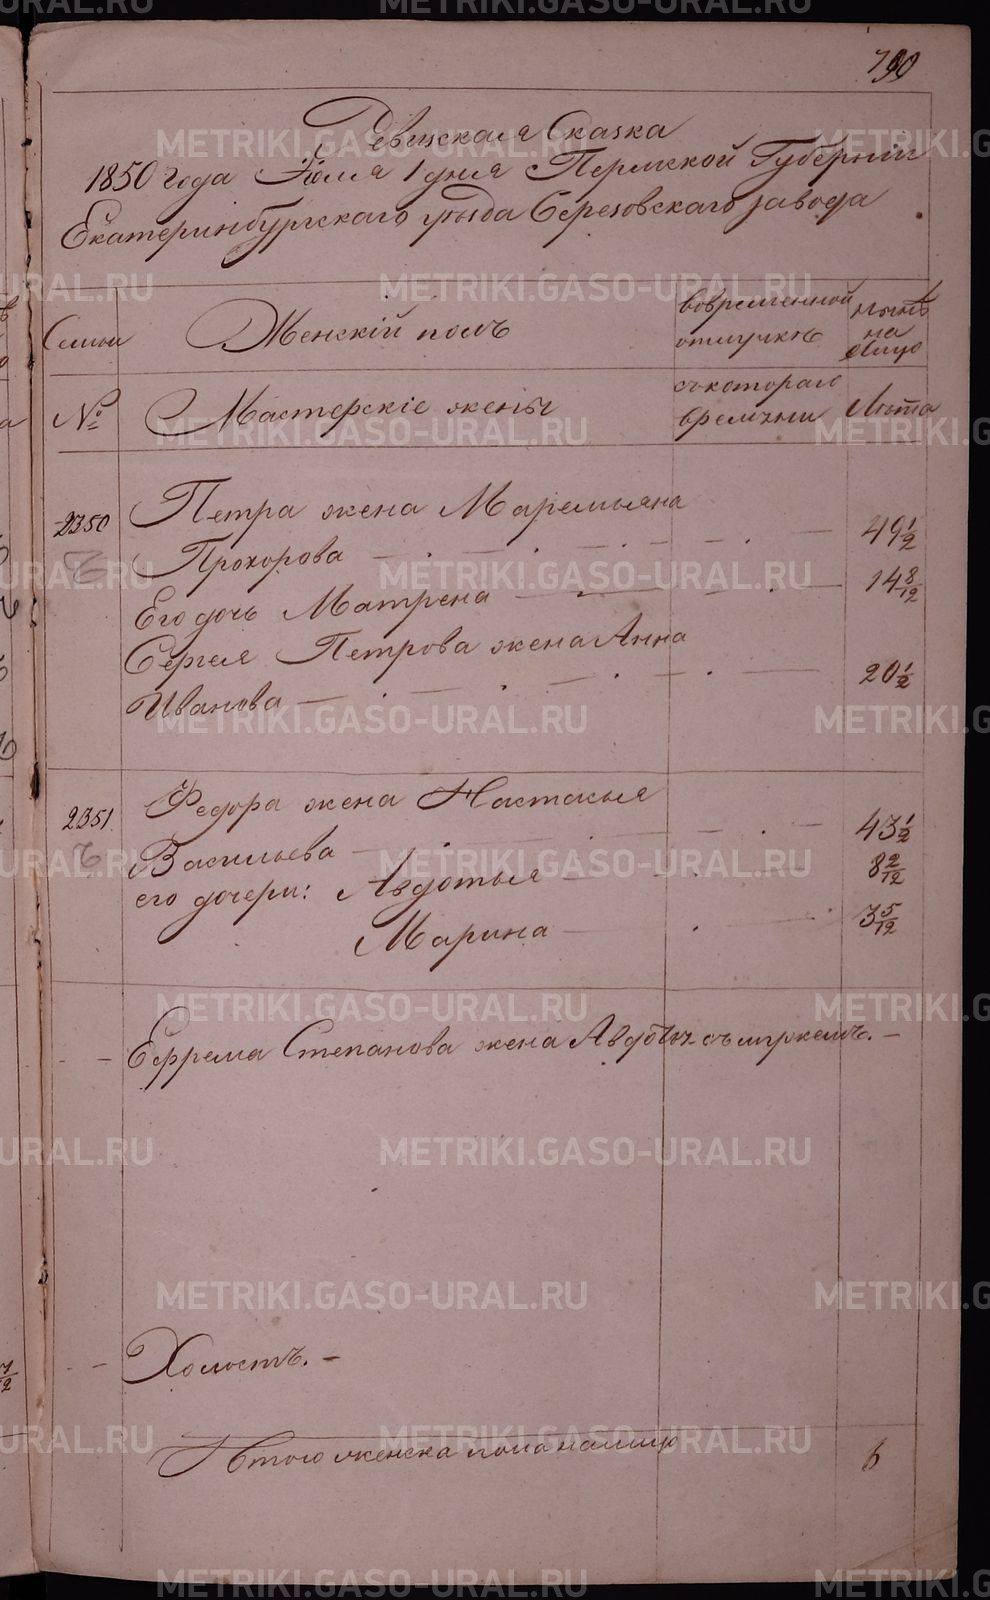 790
Ревижская Сказка
1850 года Іюля 1 дня Пермской Губерніи
Екатеринбургскаго уѣзда Березовскаго завода
Семьи
Женскій полъ
вовременной
отлучкѣ
нынѣ
на
лицо
№
Мастерскіе жены
съкотораго
времени
Лѣта
2350
Петра жена Маремьяна
Прохорова
49 1/2
Его дочь Матрена
14 8/12
Сергея Петрова жена Анна
Иванова
20 1/2
2351
Федора жена Настасья
Васильева
43 1/2
его дочери: Авдотья
8 2/12
Марина
3 5/12
Ефрема Степанова жена съ мужемъ.
Холостъ.
Итого женска пола налицо
6
METRIKI.GASO-URAL.RU